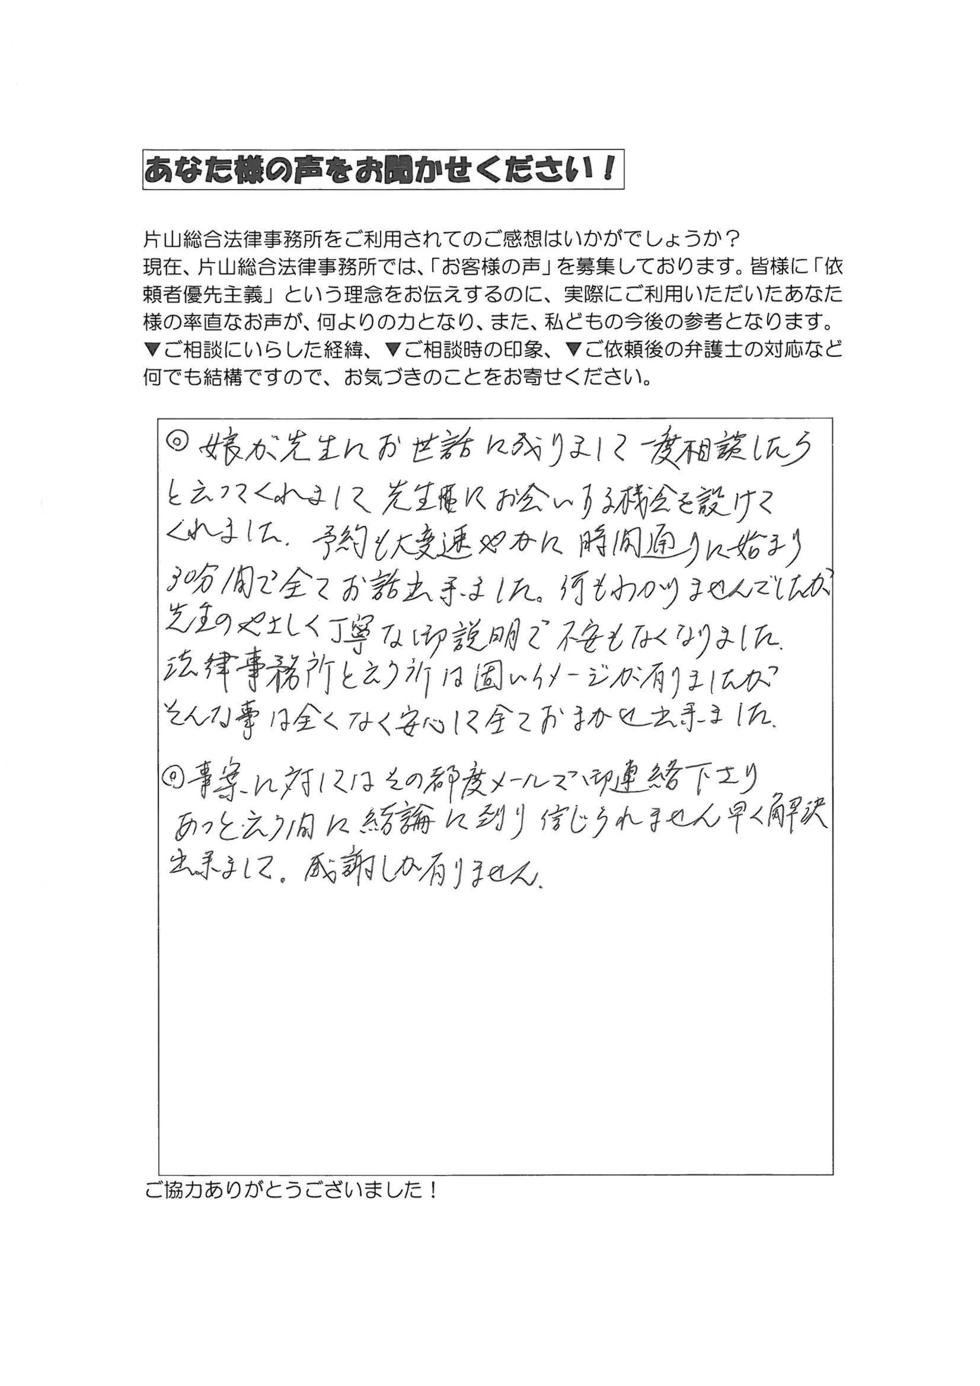 あなた様の声をお聞かせください！
片山総合法律事務所をご利用されてのご感想はいかがでしょうか？
現在、片山総合法律事務所では、「お客様の声」を募集しております。皆様に「依
頼者優先主義」という理念をお伝えするのに、実際にご利用いただいたあなた
様の率直なお声が、何よりの力となり、また、私どもの今後の参考となります。
▼ご相談にいらした経緯、▼ご相談時の印象、▼ご依頼後の弁護士の対応など
何でも結構ですので、お気づきのことをお寄せください。
◎娘が先生にお世話に成りまして一度相談したら
と云ってくれまして先生にお会いする機会を設けて
くれました。予約も大変速やかに時間通りに始まり
30分間で全てお話出来ました。何もわかりませんでしたが
先生のやさしく丁寧な御説明で不安もなくなりました。
法律事務所と云う所は固いイメージが有りましたが
そんな事は全くなく安心して全ておまかせ出来ました。
◎事案に対してはその都度メールで御連絡下さり
あっと云う間に結論に到り信じられません早く解決
出来まして。感謝しか有りません。
ご協力ありがとうございました！